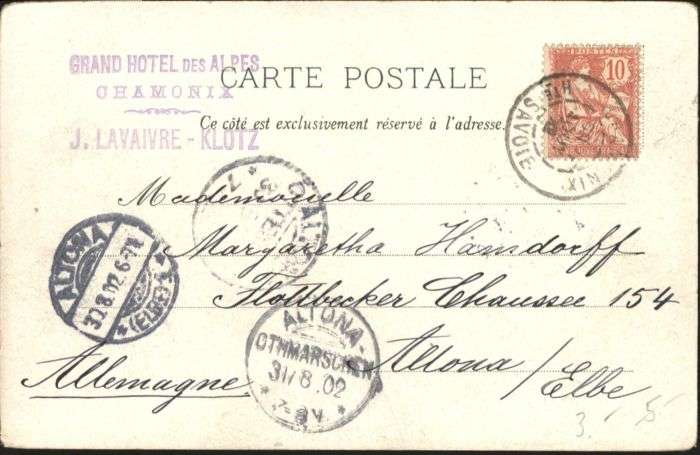 GRAND HOTEL DES ALPES
CHAMONIX
J. LAVAIVRE - KLOTZ
CARTE POSTALE
Ce côté est exclusivement réservé à l'adresse.
POSTES
10
NIX
HTE SAVOIE
Mademoiselle
Margaretha Hamdorff
Flottbecker Chaussee 154
Altona
/Elbe
Allemagne
ALTONA
30.8.02.6-7
* (ELBE) 1
ALTONA
OTHMARSCHEN
31/8.02
7-8V.
3. 5